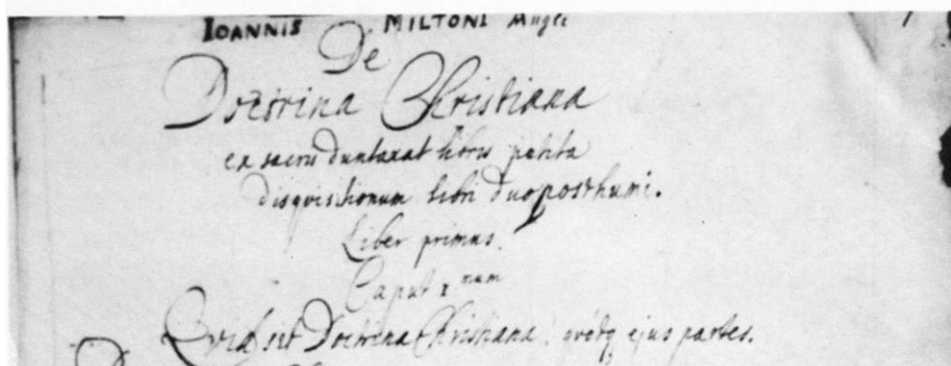 IOANNIS MILTONI Angli
De
Doctrina Christiana
ex sacris duntaxat libris petita
disquisitionum libri duo posthumi.
Liber primus.
Caput 1 num
Quid sit Doctrina Christiana, quotq ejus partes.